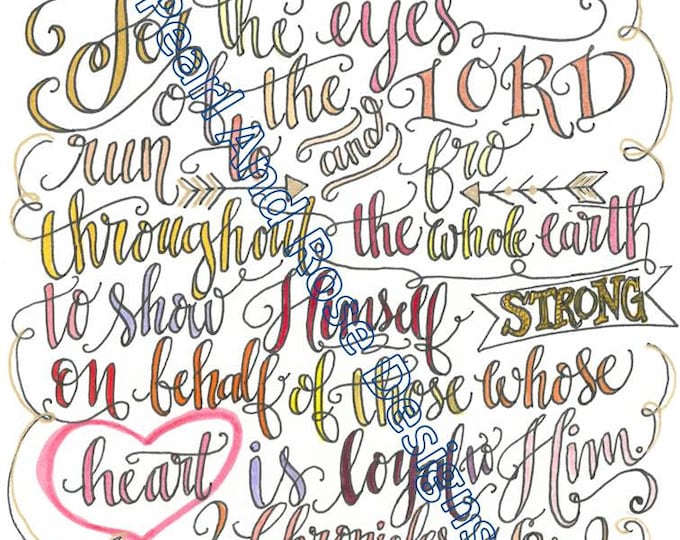 For the eyes
of the LORD
run to and fro
throughout the whole earth
to show Himself STRONG
on behalf of those whose
heart is loyal to Him.
2 Chronicles
Pearl And Rose Designs